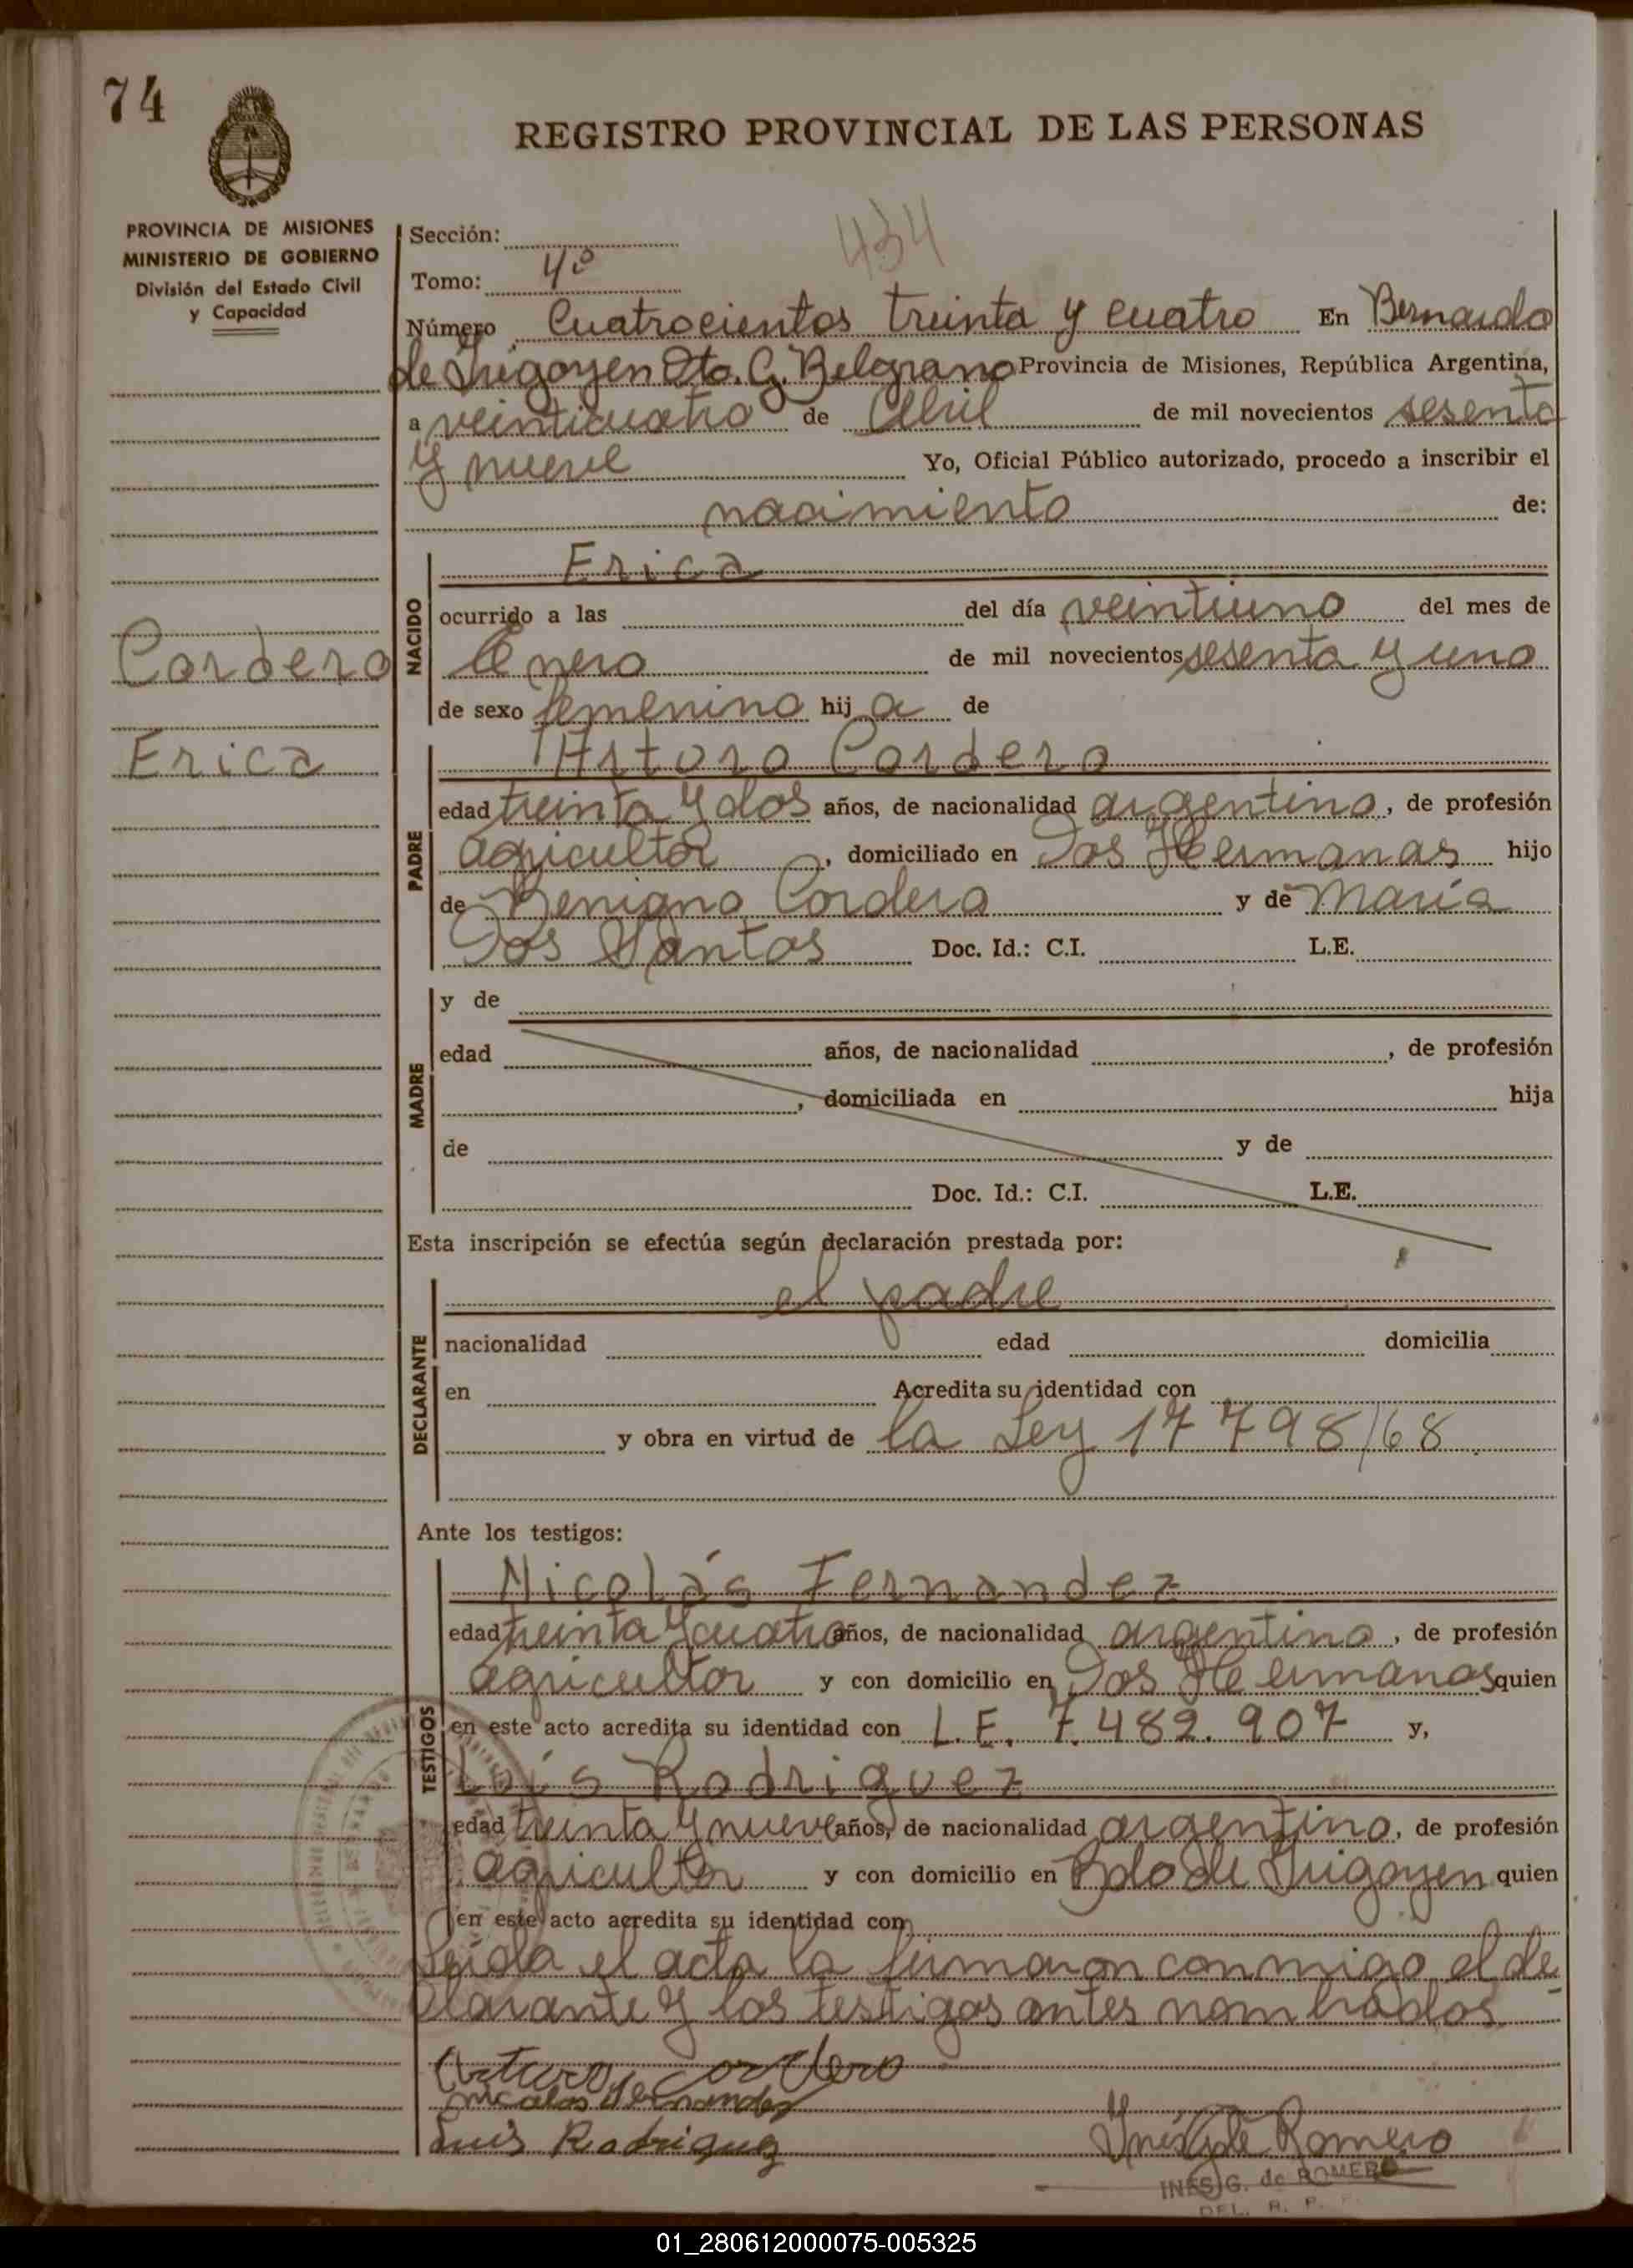 74
REGISTRO PROVINCIAL DE LAS PERSONAS
PROVINCIA DE MISIONES
MINISTERIO DE GOBIERNO
División del Estado Civil
y Capacidad
434
Sección:
Tomo: 4º
Número Cuatrocientos treinta y cuatro En Bernardo
de Irigoyen Dto. G. Belgrano Provincia de Misiones, República Argentina,
a veinticuatro de Abril de mil novecientos sesenta
y nueve Yo, Oficial Público autorizado, procedo a inscribir el
nacimiento de:
Cordero
Erica
NACIDO
Erica
ocurrido a las del día veintiuno del mes de
Enero de mil novecientos sesenta y uno
de sexo femenino hij a de
PADRE
Arturo Cordero
edad treinta y dos años, de nacionalidad argentino, de profesión
agricultor, domiciliado en Dos Hermanas hijo
de Benigno Cordero y de María
Dos Santos Doc. Id.: C.I. L.E.
MADRE
y de
edad años, de nacionalidad , de profesión
, domiciliada en hija
de y de
Doc. Id.: C.I. L.E.
Esta inscripción se efectúa según declaración prestada por:
DECLARANTE
el padre
nacionalidad edad domicilia
en Acredita su identidad con
y obra en virtud de la Ley 17798/68
Ante los testigos:
TESTIGOS
Nicolás Fernandez
edad treinta y cuatro años, de nacionalidad argentino, de profesión
agricultor y con domicilio en Dos Hermanas quien
en este acto acredita su identidad con L.E. 7.482.907 y,
Luís Rodriguez
edad treinta y nueve años, de nacionalidad argentino, de profesión
agricultor y con domicilio en Bdo de Irigoyen quien
en este acto acredita su identidad con
Leída el acta la firmaron conmigo el de
clarante y los testigos antes nombrados
Arturo Cordero
Nicolas Fernandez
Luis Rodriguez
Inés G de Romero
INES G. de ROMERO
DEL. R. P.
01_280612000075-005325